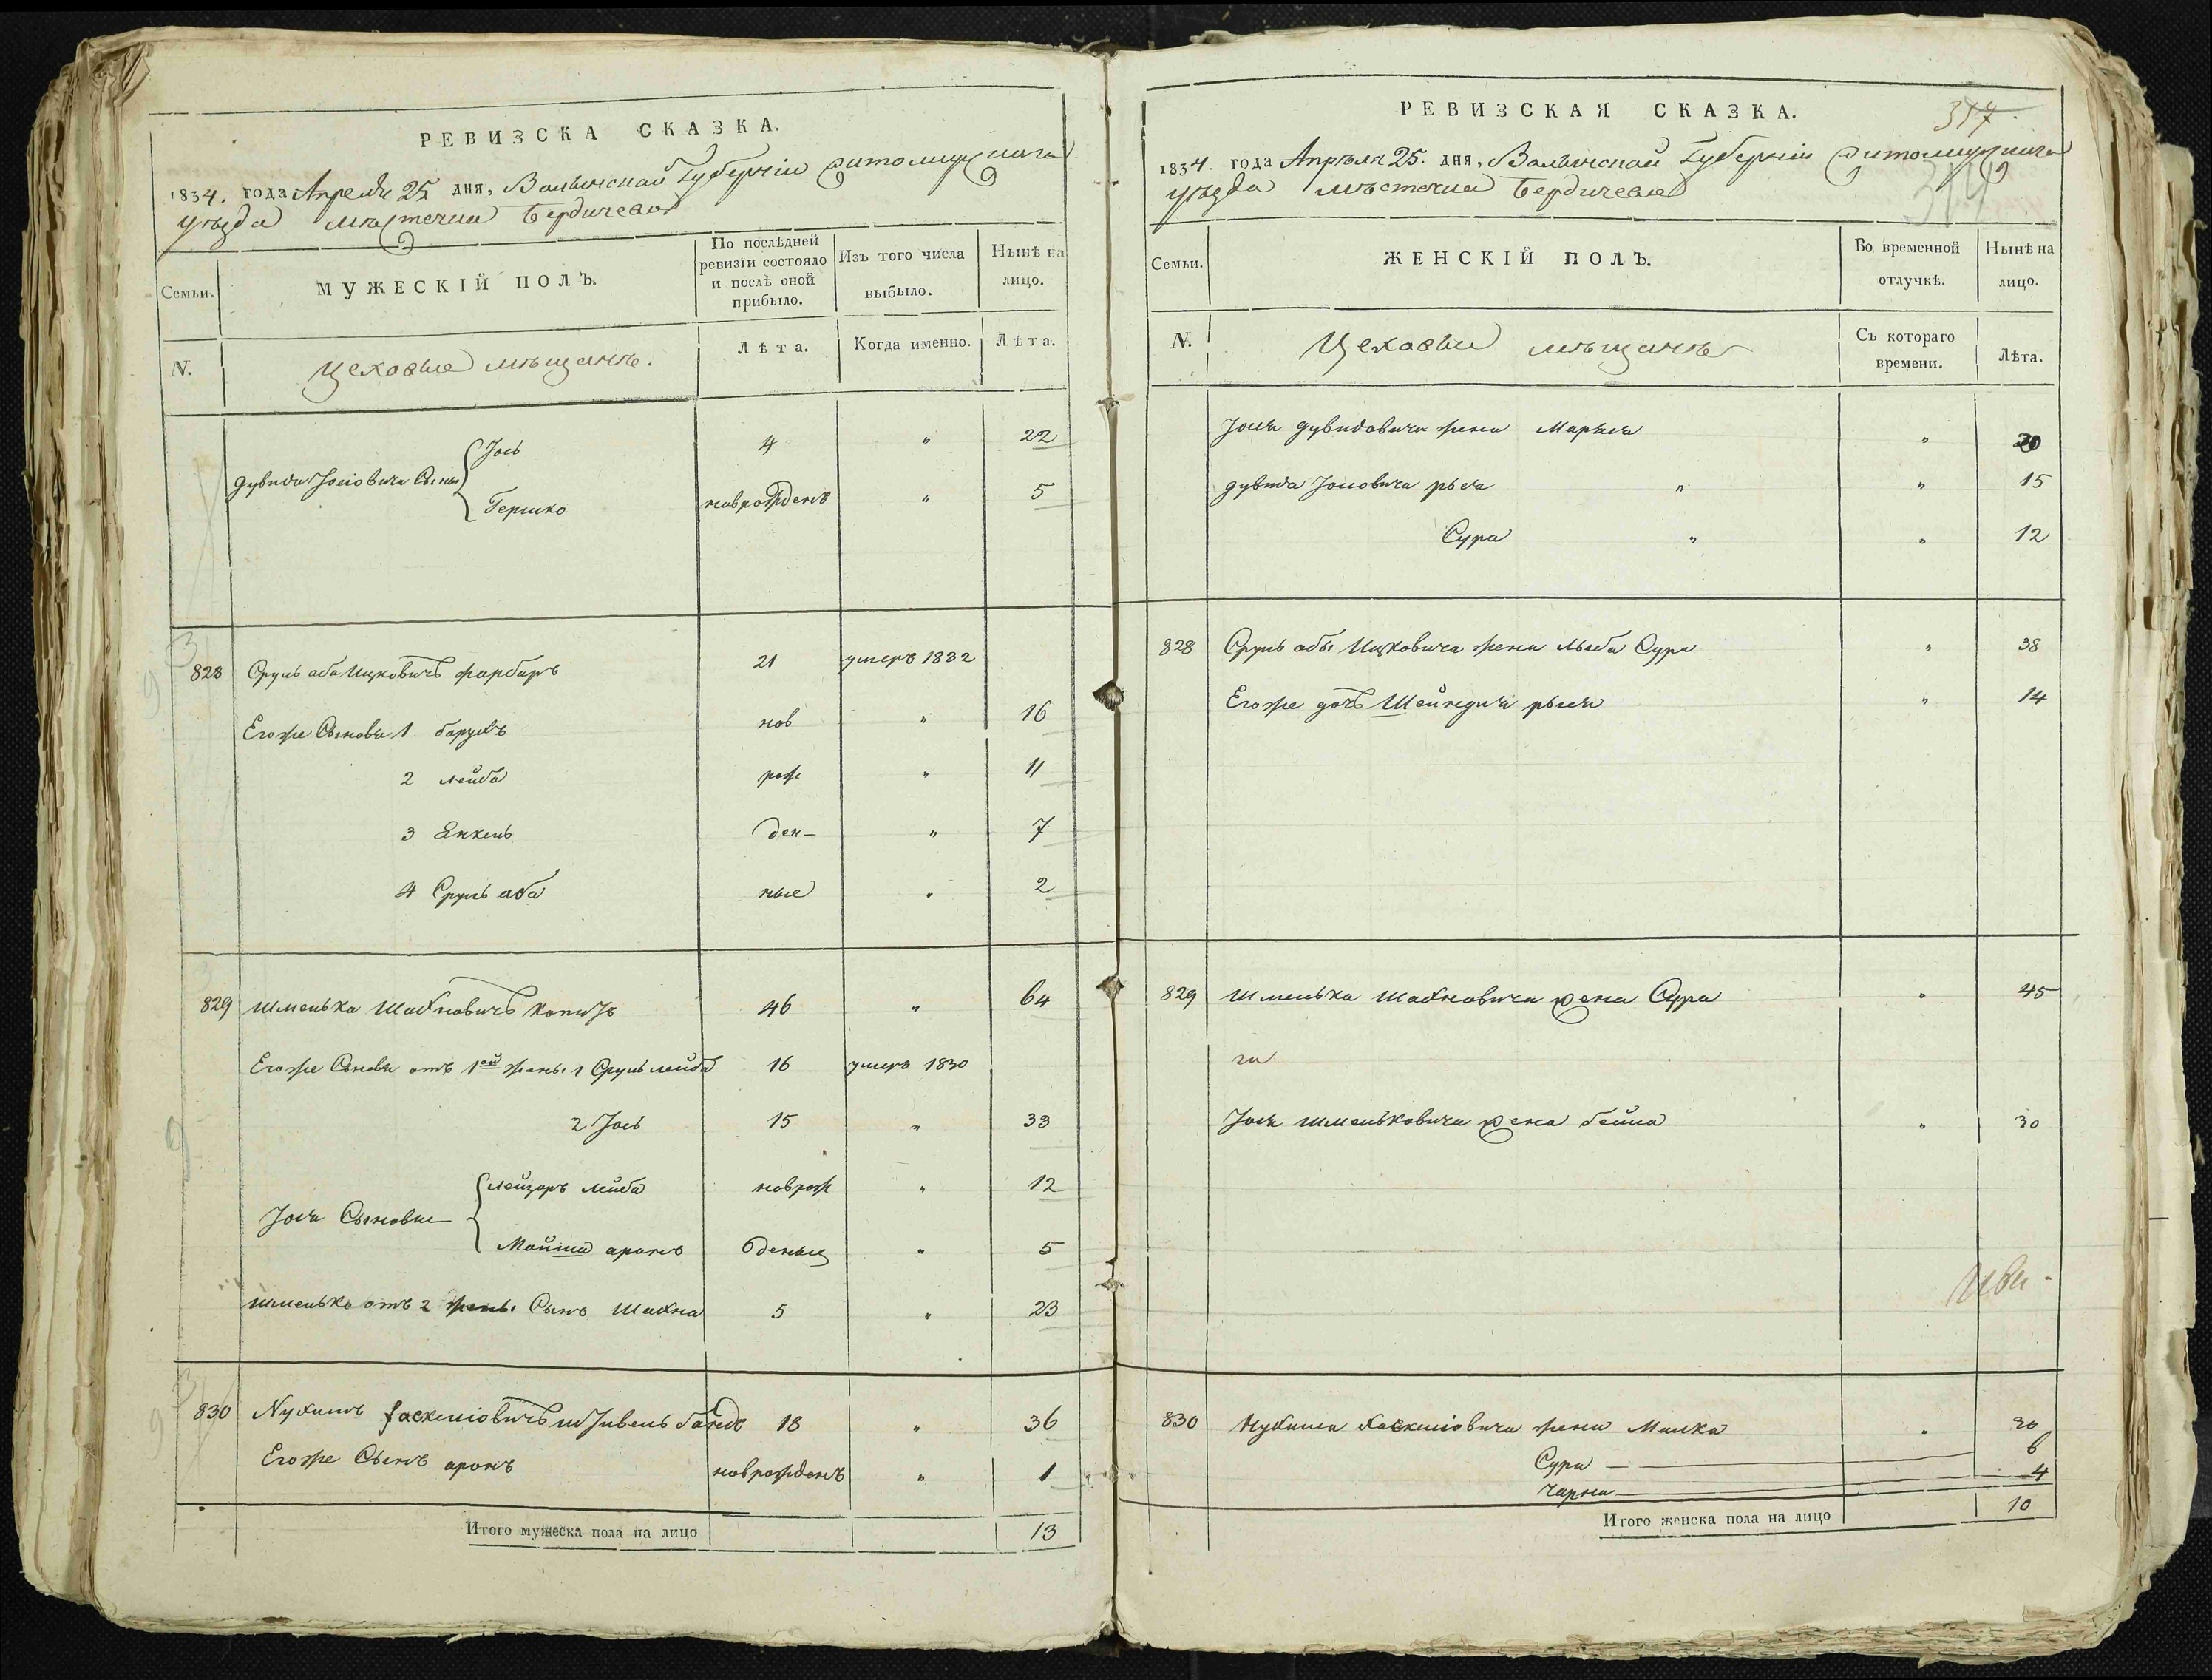 РЕВИЗСКА СКАЗКА.
1834. года Апреля 25 дня, Волынской Губернiи Житомирскаго
уѣзда мѣстечка Бердичева
Семьи.
МУЖЕСКIЙ ПОЛЪ.
По послѣдней ревизiи состояло и послѣ оной прибыло.
Изъ того числа выбыло.
Нынѣ на лицо.
N.
Цеховые мѣщане.
Лѣта.
Когда именно.
Лѣта.
Дувида Iосiовича Сыны { Iось 4 " 22
Гершко новрожденъ " 5
828 Сруль аба Ицковичъ фарбаръ 21 умеръ 1832
Егоже Сыновя 1 барухъ нов " 16
2 лейба рож " 11
3 Янкель ден- " 7
4 Сруль аба ные " 2
829 Шмелька Шахновичъ 46 " 64
Егоже Сыновя отъ 1ой жены 1 Сруль лейба 16 умеръ 1830
2 Iось 15 " 33
Iося Сыновья { лейзоръ лейба новрож " 12
Мойша аронъ деныи " 5
Шмелько отъ 2 жены Сынъ Шахна 5 " 23
830 Нухимъ Хаскелiовичъ 18 " 36
Егоже Сынъ аронъ новрожденъ " 1
Итого мужеска пола на лицо 13
РЕВИЗСКАЯ СКАЗКА.
317
314
1834. года Апрѣля 25. дня, Волынской Губернiи Житомирскаго
уѣзда мѣстечка Бердичева
Семьи.
ЖЕНСКIЙ ПОЛЪ.
Во временной отлучкѣ.
Нынѣ на лицо.
N.
Цеховые мѣщане
Съ котораго времени.
Лѣта.
Iося Дувидовича жена Маръя " 20
Дувида Iосовича рыся " " 15
Сура " " 12
828 Сруль абы Ицковича жена Сура " 38
Егоже дочъ Шейндля рыся " 14
829 Шмелька Шахновича жена Сура " 45
га
Iося Шмельковича жена бейла " 30
830 Нухима Хаскелiовича жена Малка " 30
Сура 6
Чарна 4
Итого женска пола на лицо 10